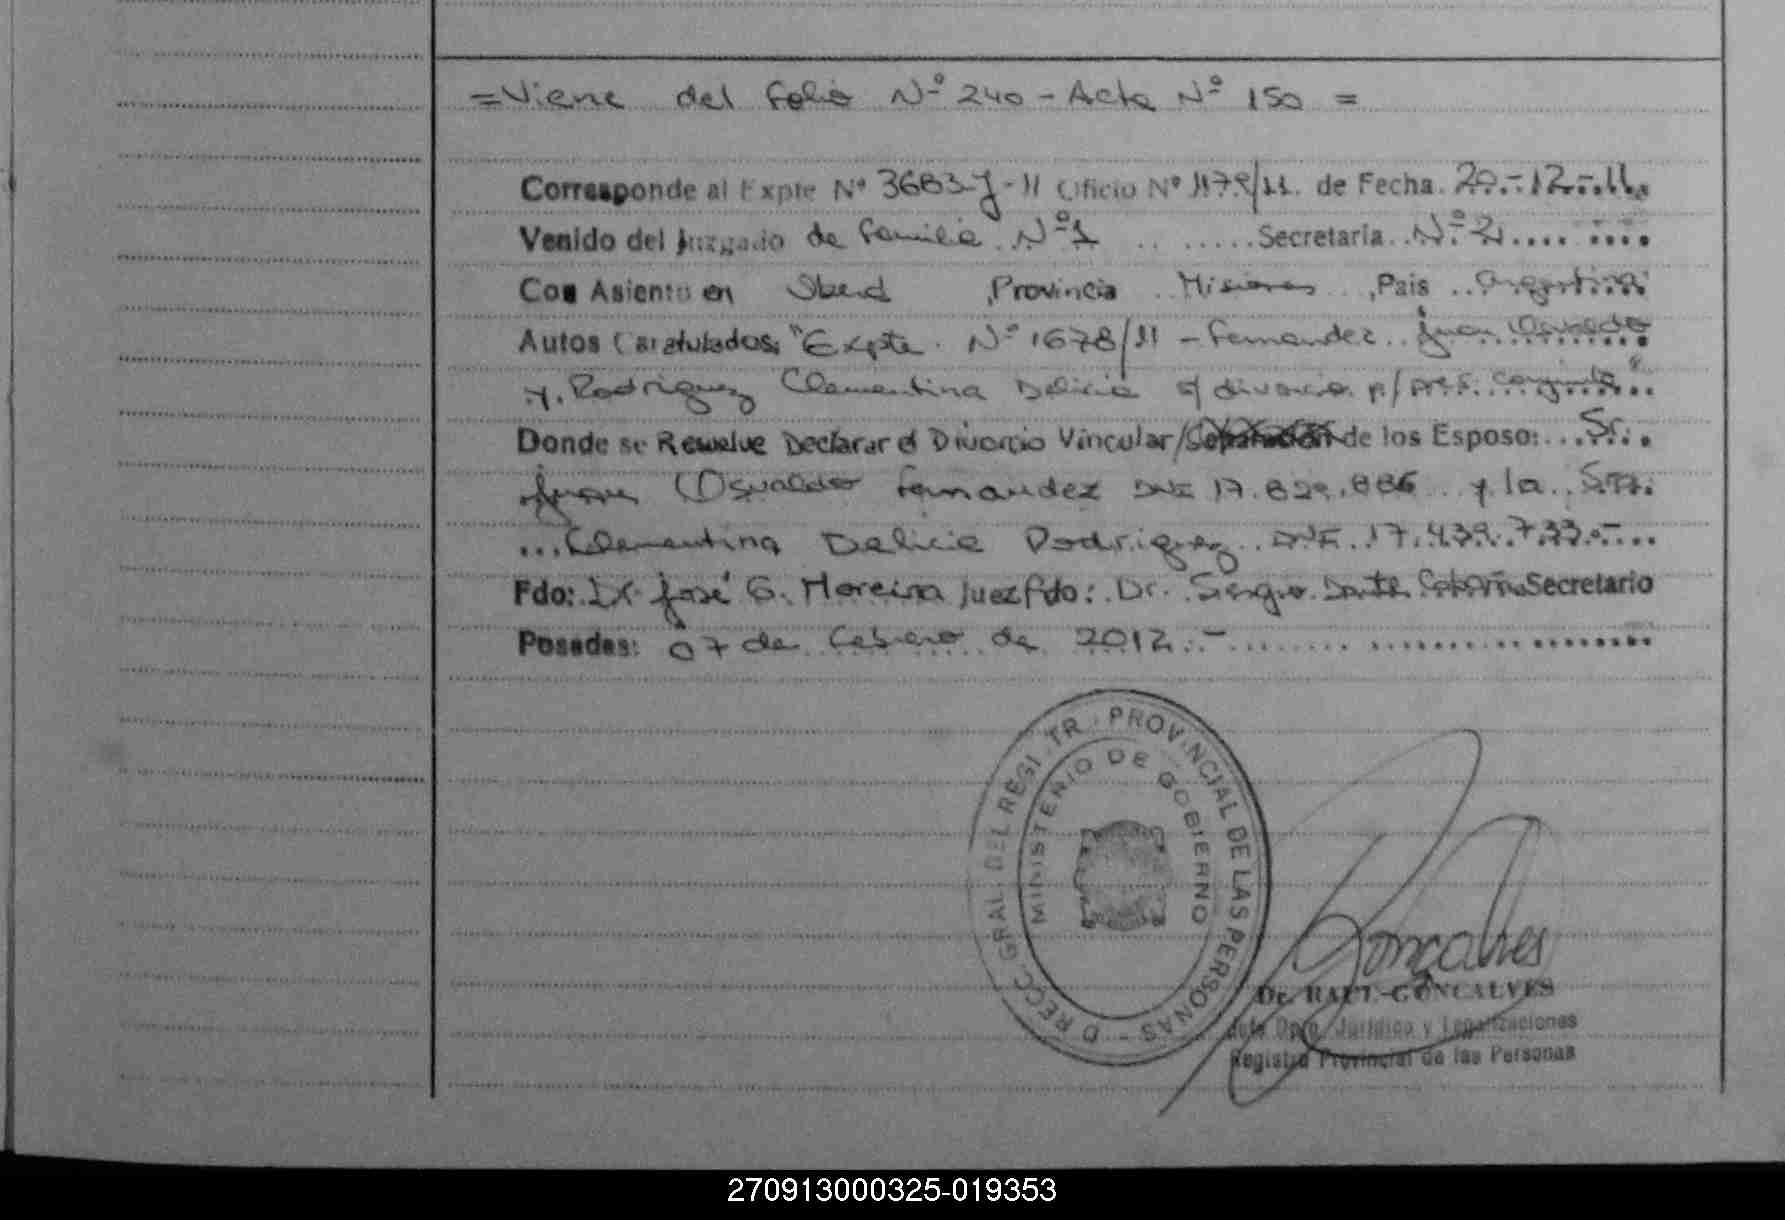 = Viene del folio Nº 240 - Acta Nº 150 =
Corresponde al Expte Nº 3683-J-11 Oficio Nº 1179/11. de Fecha. 20.-12.-11.
Venido del Juzgado de Familia Nº 1 Secretaria Nº 2
Con Asiento en Oberá Provincia Misiones, Pais Argentina
Autos Caratulados: "Expte. Nº 1678/11 - Fernandez Juan Osvaldo
y Rodriguez Clementina Delicia s/ divorcio p/ pres. conjunta"
Donde se Resuelve Declarar el Divorcio Vincular/Separación de los Esposo: Sr.
Juan Osvaldo Fernandez DNI 17.829.886 y la Sra.
Clementina Delicia Rodriguez DNI 17.439.733.-
Fdo: Dr José G. Moreira Juez fdo: Dr. Sergio Dante Secretario
Posadas: 07 de febrero de 2012.-
DIRECC. GRAL. DEL REGISTR. PROVINCIAL DE LAS PERSONAS -
MINISTERIO DE GOBIERNO
Gonçalves
Dr. RAUL GONCALVES
Jefe Dpto. Jurídico y Legalizaciones
Registro Provincial de las Personas
270913000325-019353